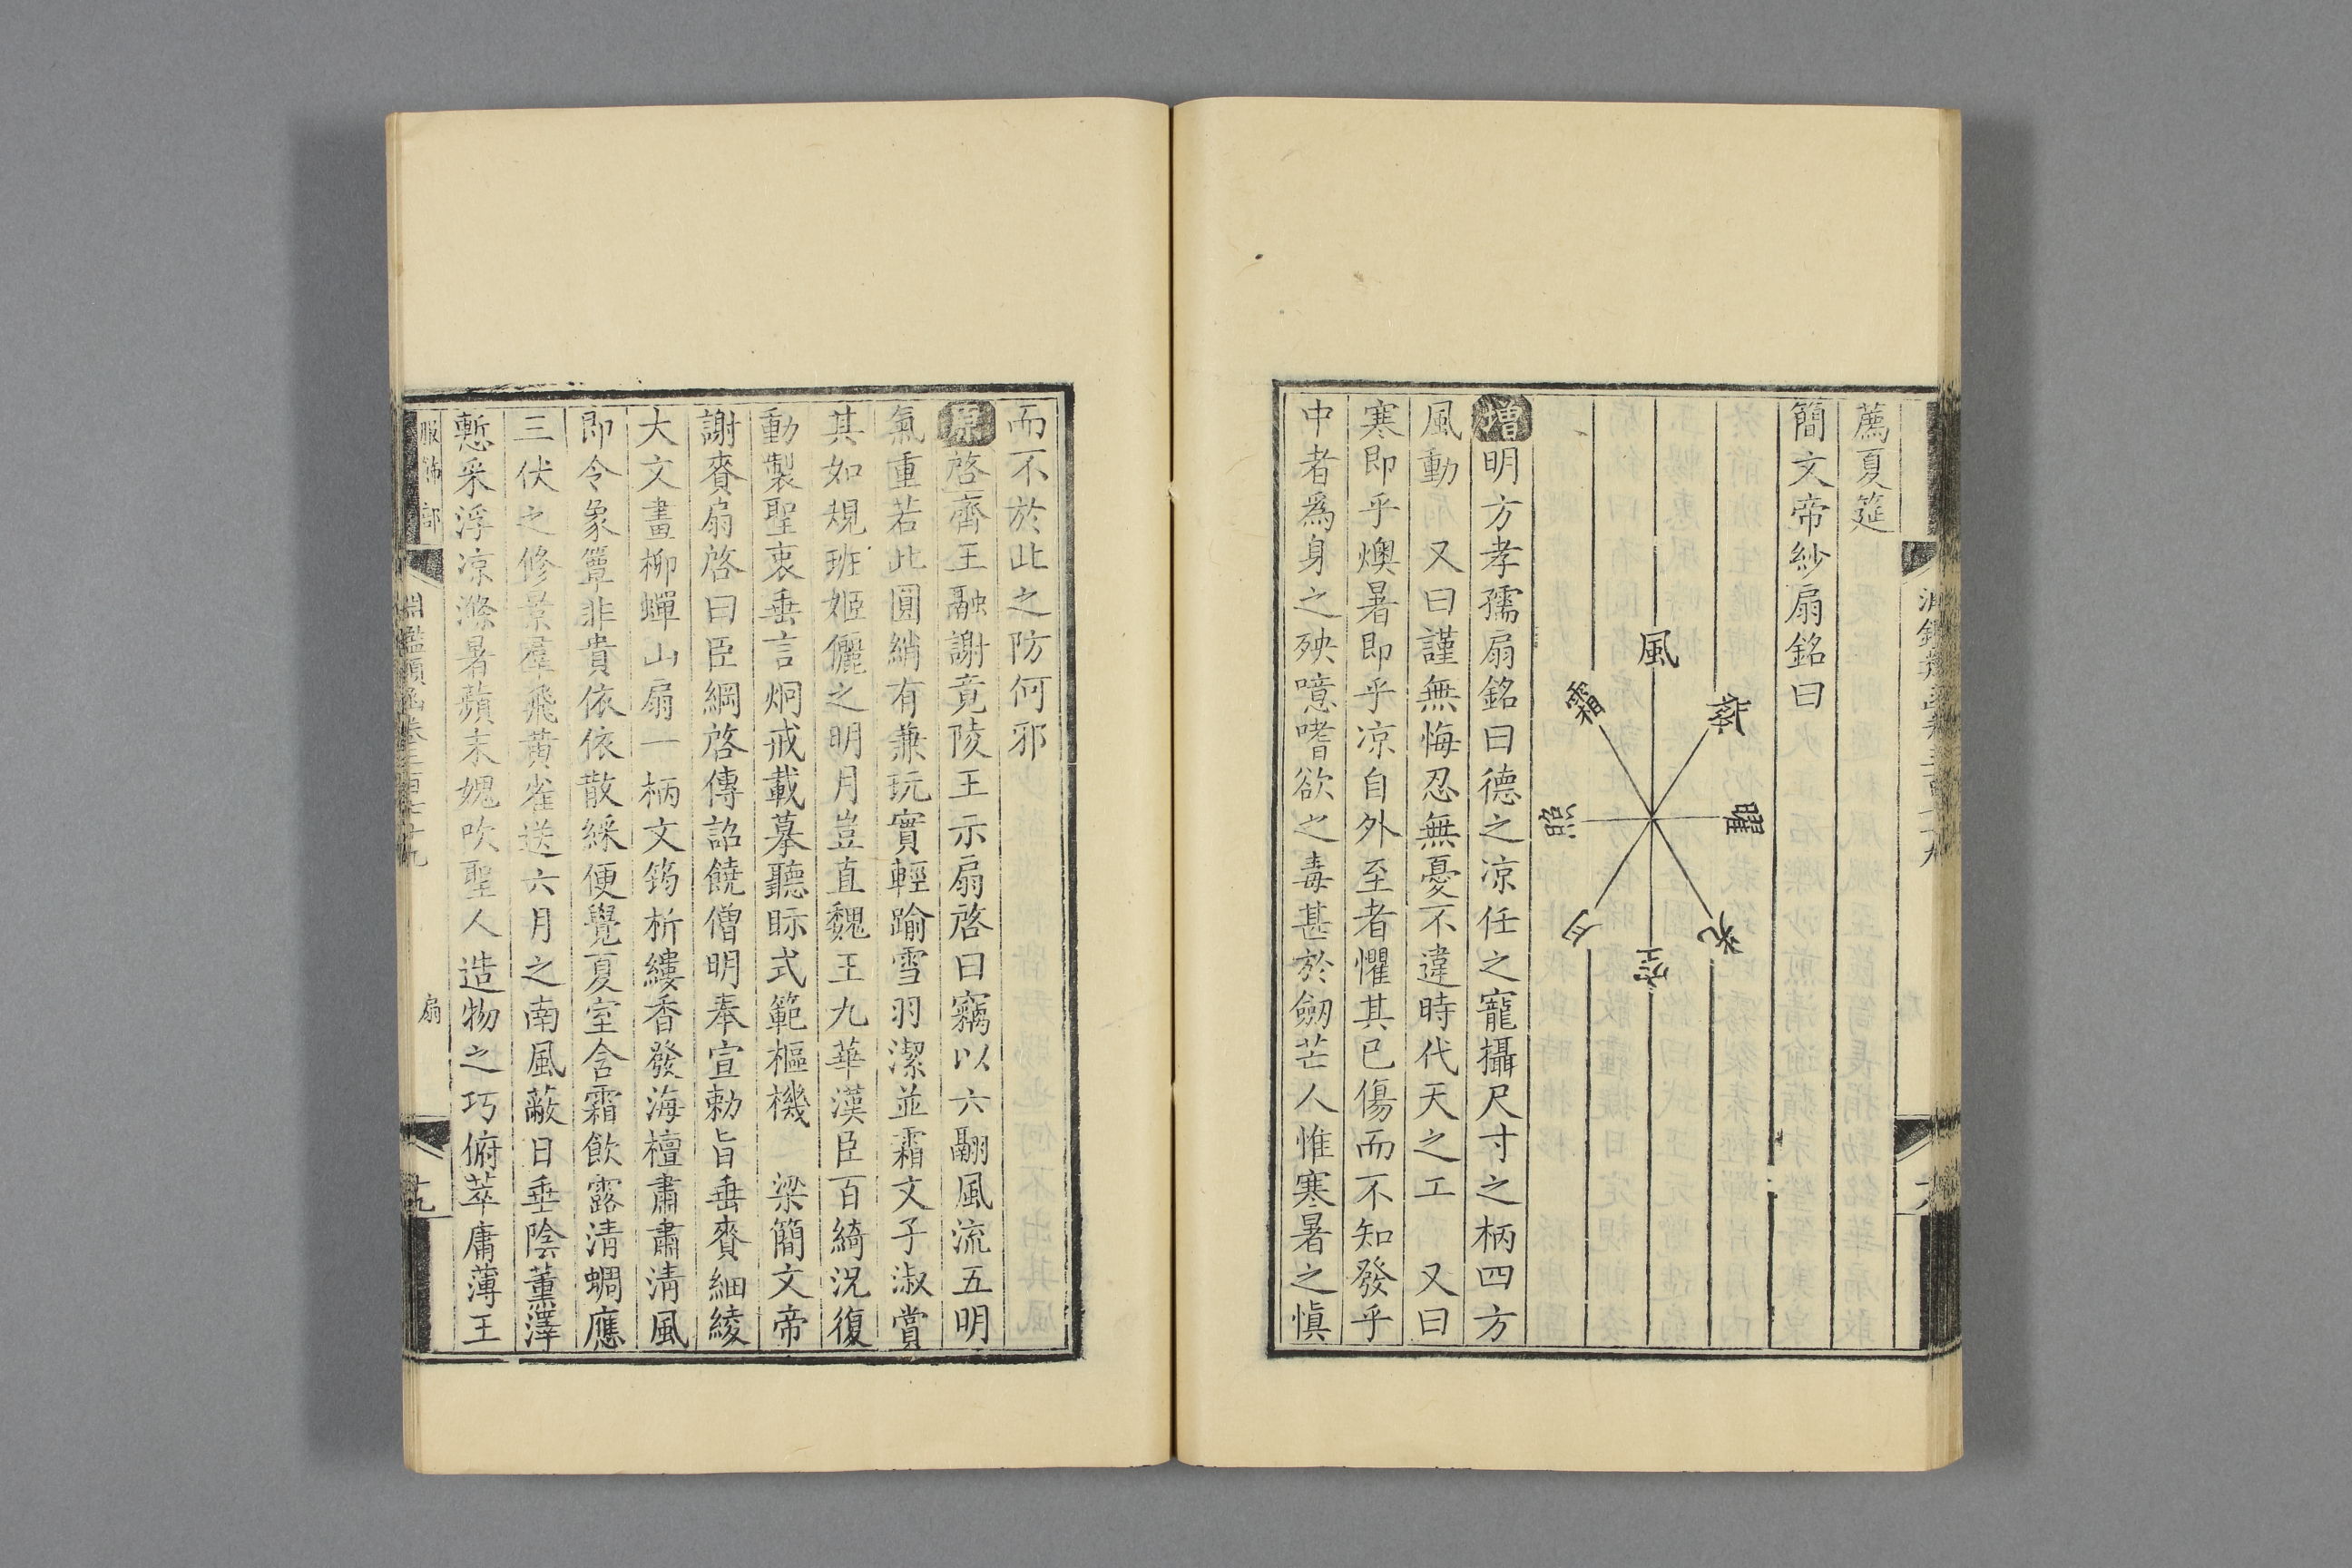 薦夏筵
簡文帝紗扇銘曰
風
霜
照
夕
空
光
曜
增明方孝孺扇銘曰德之凉任之寵攝尺寸之柄四方
風動　又曰謹無悔忍無憂不違時代天之工　又曰
寒即乎燠暑即乎凉自外至者懼其已傷而不知發乎
中者爲身之殃噫嗜欲之毒甚於劒芒人惟寒暑之愼
而不於此之防何邪
原啓齊王融謝竟陵王示扇啓曰竊以六翮風流五明
氣重若此圓綃有兼玩實輕踰雪羽潔並霜文子淑賞
其如規班姬儷之明月豈直魏王九華漢臣百綺况復
動製聖衷垂言炯戒載摹聽眎式範樞機　梁簡文帝
謝賚扇啓曰臣綱啓傳詔饒僧明奉宣勅旨垂賚細綾
大文畫柳蟬山扇一柄文筠析縷香發海檀肅肅清風
即令象簟非貴依依散綵便覺夏室含霜飲露清蜩應
三伏之修景羣飛黃雀送六月之南風蔽日垂陰薰澤
慙采浮凉滌暑蘋末媿吹聖人造物之巧俯萃庸薄王
服飾部
扇